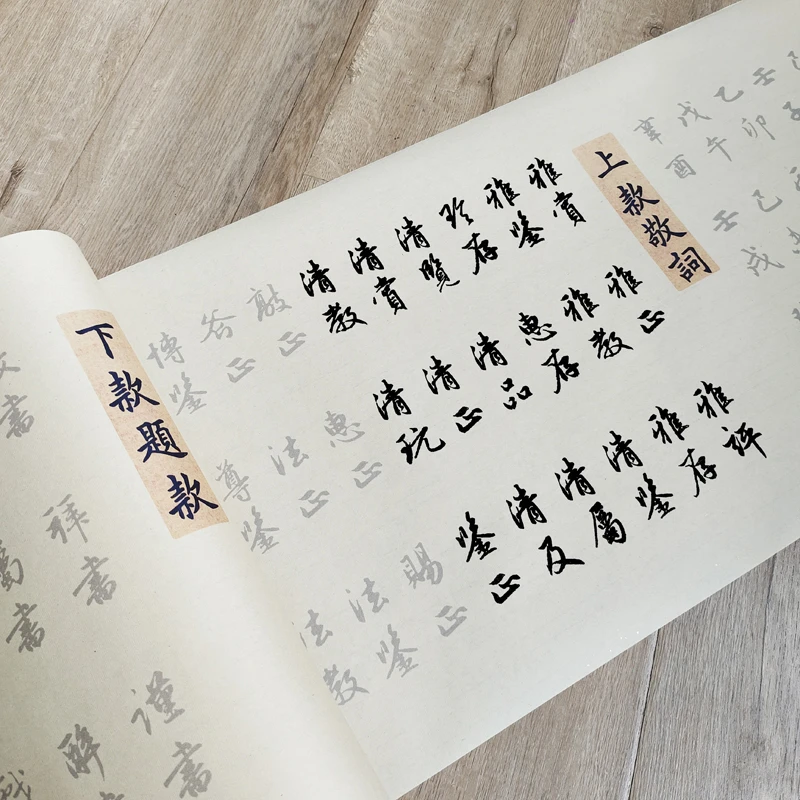 壬子
乙卯
戊午
辛酉
壬戌
上款敬詞
雅賞
雅鑒
珍存
清覽
清賞
清教
正
正
博鑒
雅正
雅教
惠存
清品
清正
清玩
惠正
法正
尊鑒
雅評
雅存
清鑒
清屬
清及
鑒正
賜正
法鑒
法教
下款題款
拜書
屬書
謹書
醉